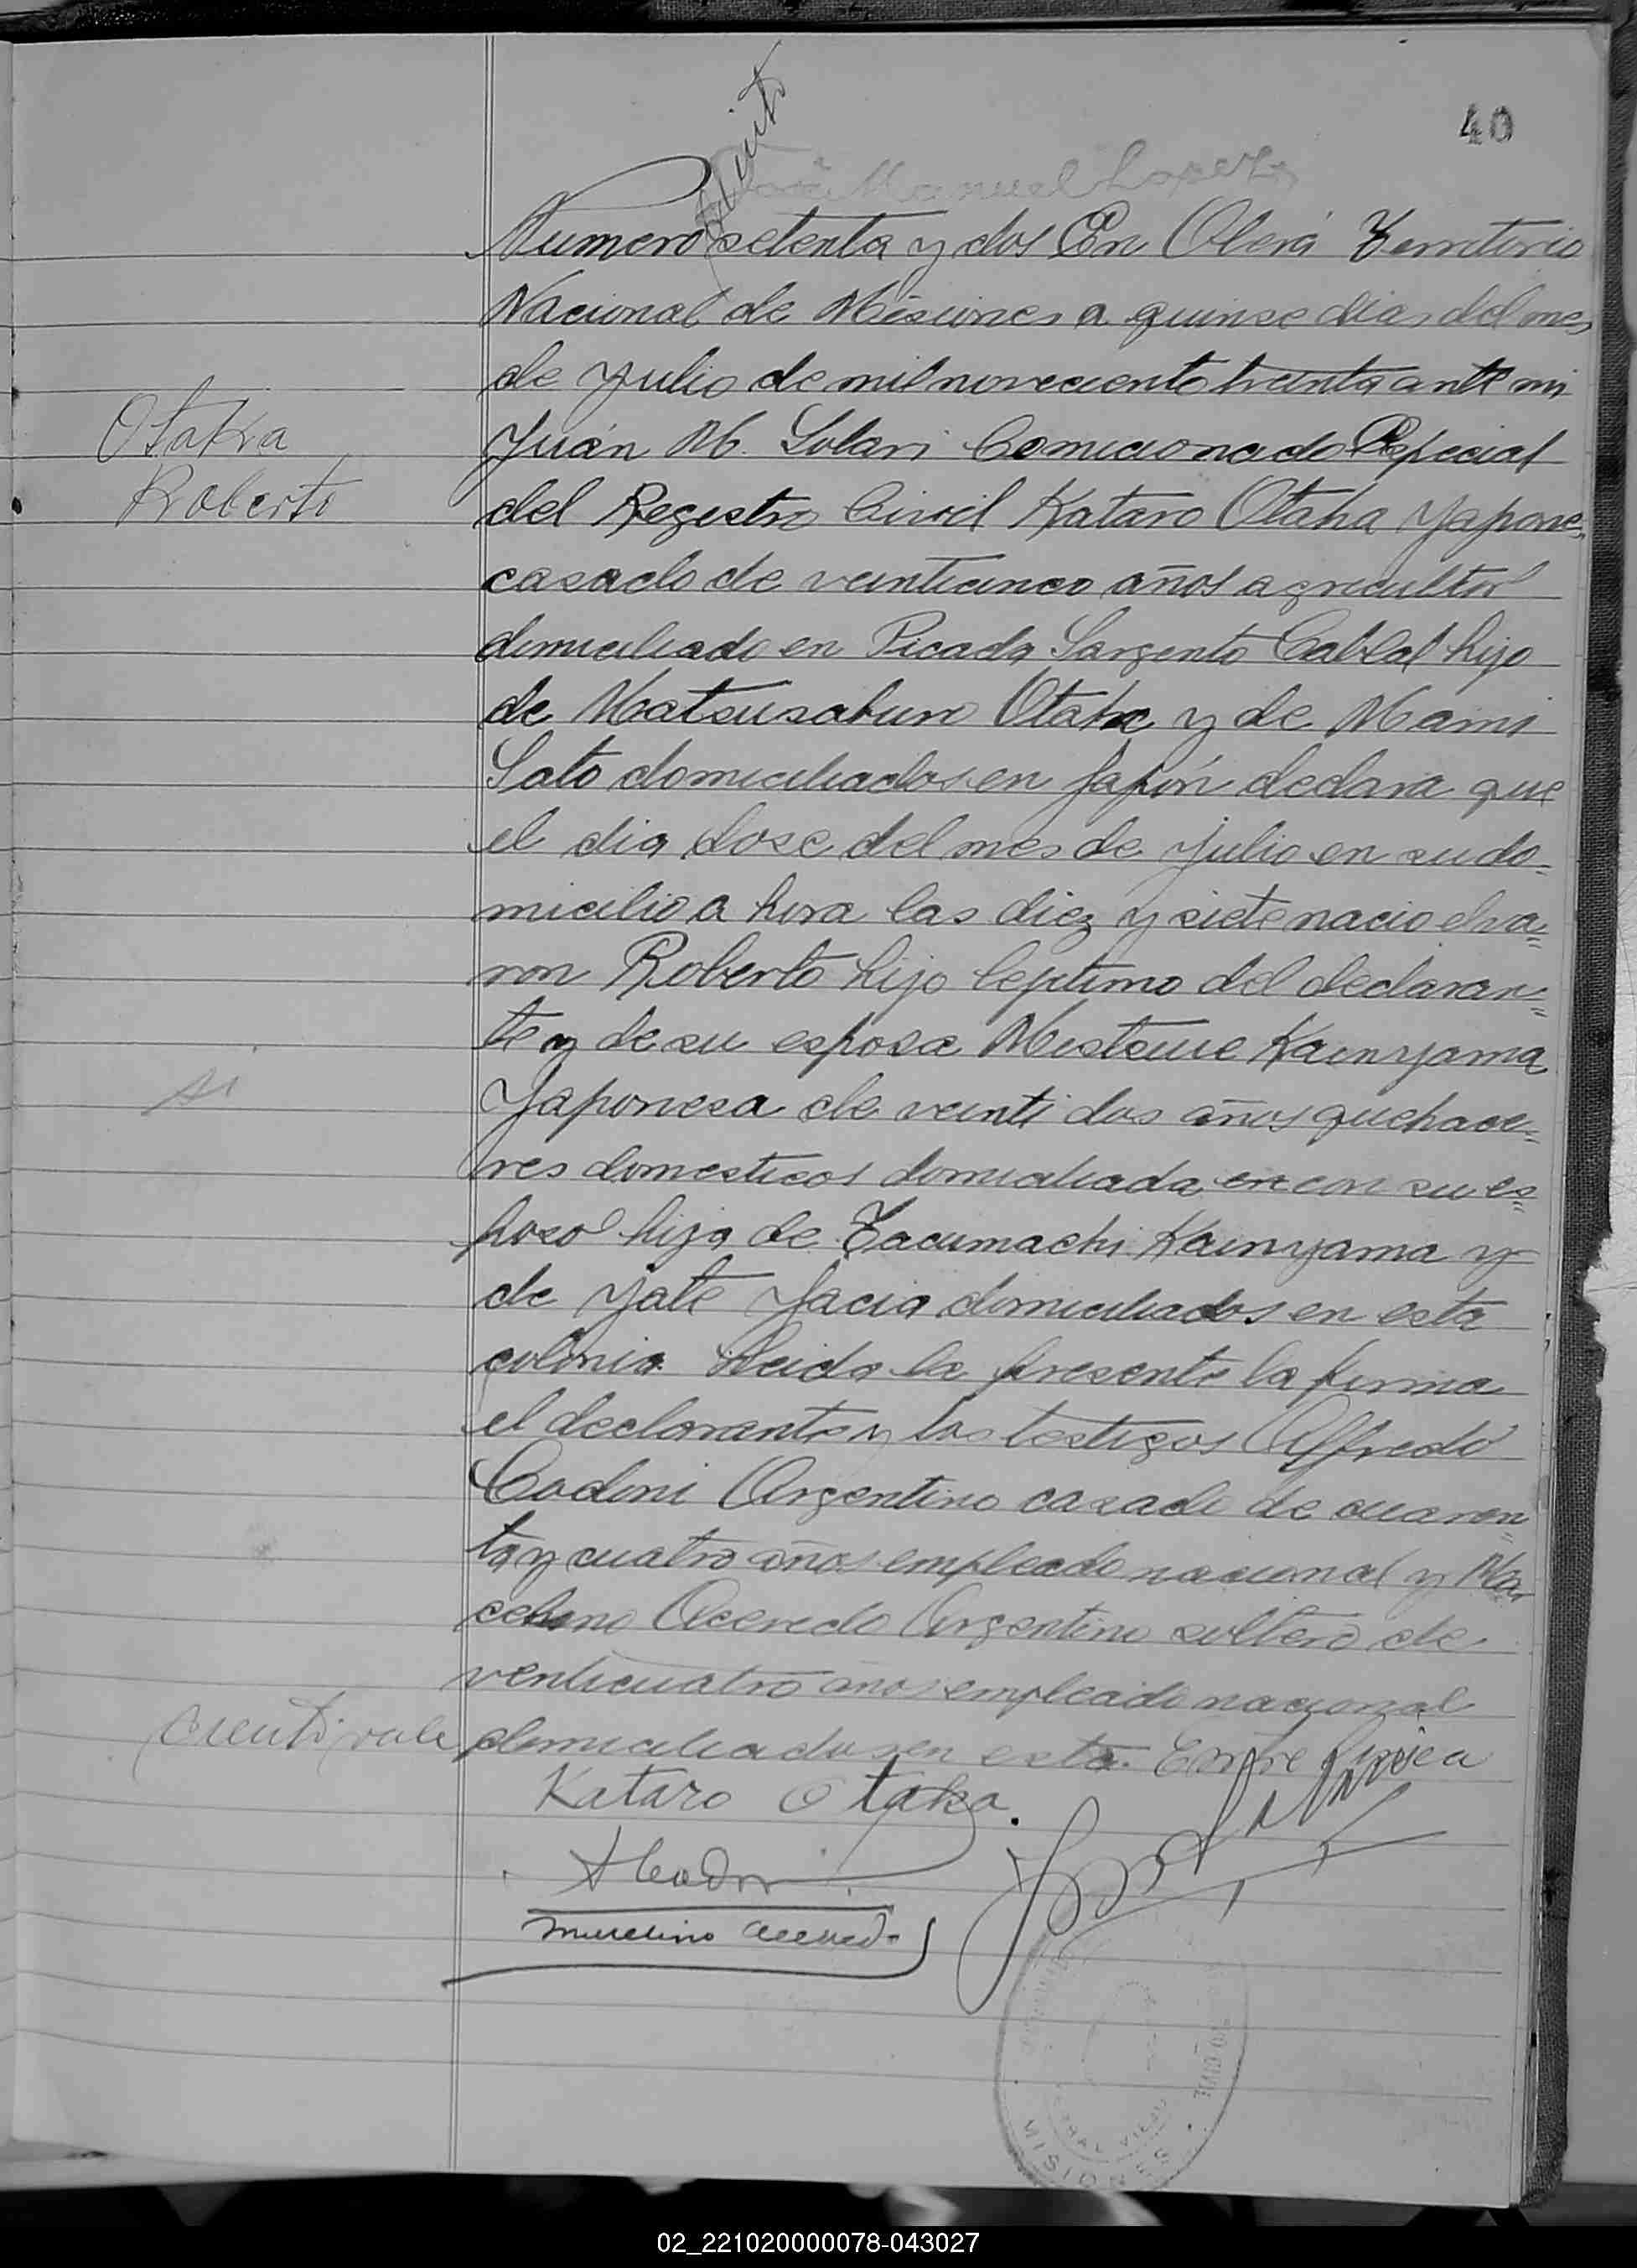 40
José Manuel Lopez
ciento
Numero setenta y dos En Oberá Territorio
Nacional de Misiones a quinse dias del mes
de Julio de mil noveciento treinta ante mi
Otaka
Juán M. Solari Comicionado Especial
Roberto
del Registro Civil Kataro Otaka Japone
casado de veinticinco años agricultor
domiciliado en Picada Sargento Cablal hijo
de Matsusaburo Otaka y de Mami
Sato domiciliados en Japón declara que
el dia dose del mes de Julio en su do-
micilio a hora las diez y siete nacio el va=
ron Roberto hijo leptimo del declaran=
te y de su esposa Mistsue Kainyama
Japonesa de veinti dos años quehace=
res domesticos domiciliada en con su es=
poso hija de Tacumachi Kainyama y
de Yate Jacia domiciliados en esta
colonia. Leida la presente la firma
el declarante y los testigos Alfredo
Codoni Argentino casado de cuaren=
ta y cuatro años empleado nacional y Mar
celino Acevedo Argentino soltero de
venticuatro años empleado nacional
ciento vale
domiciliados en esta. Entre linea
Kataro Otaka.
A Codoni
Marcelino Acevedo
MISIONES
02_221020000078-043027